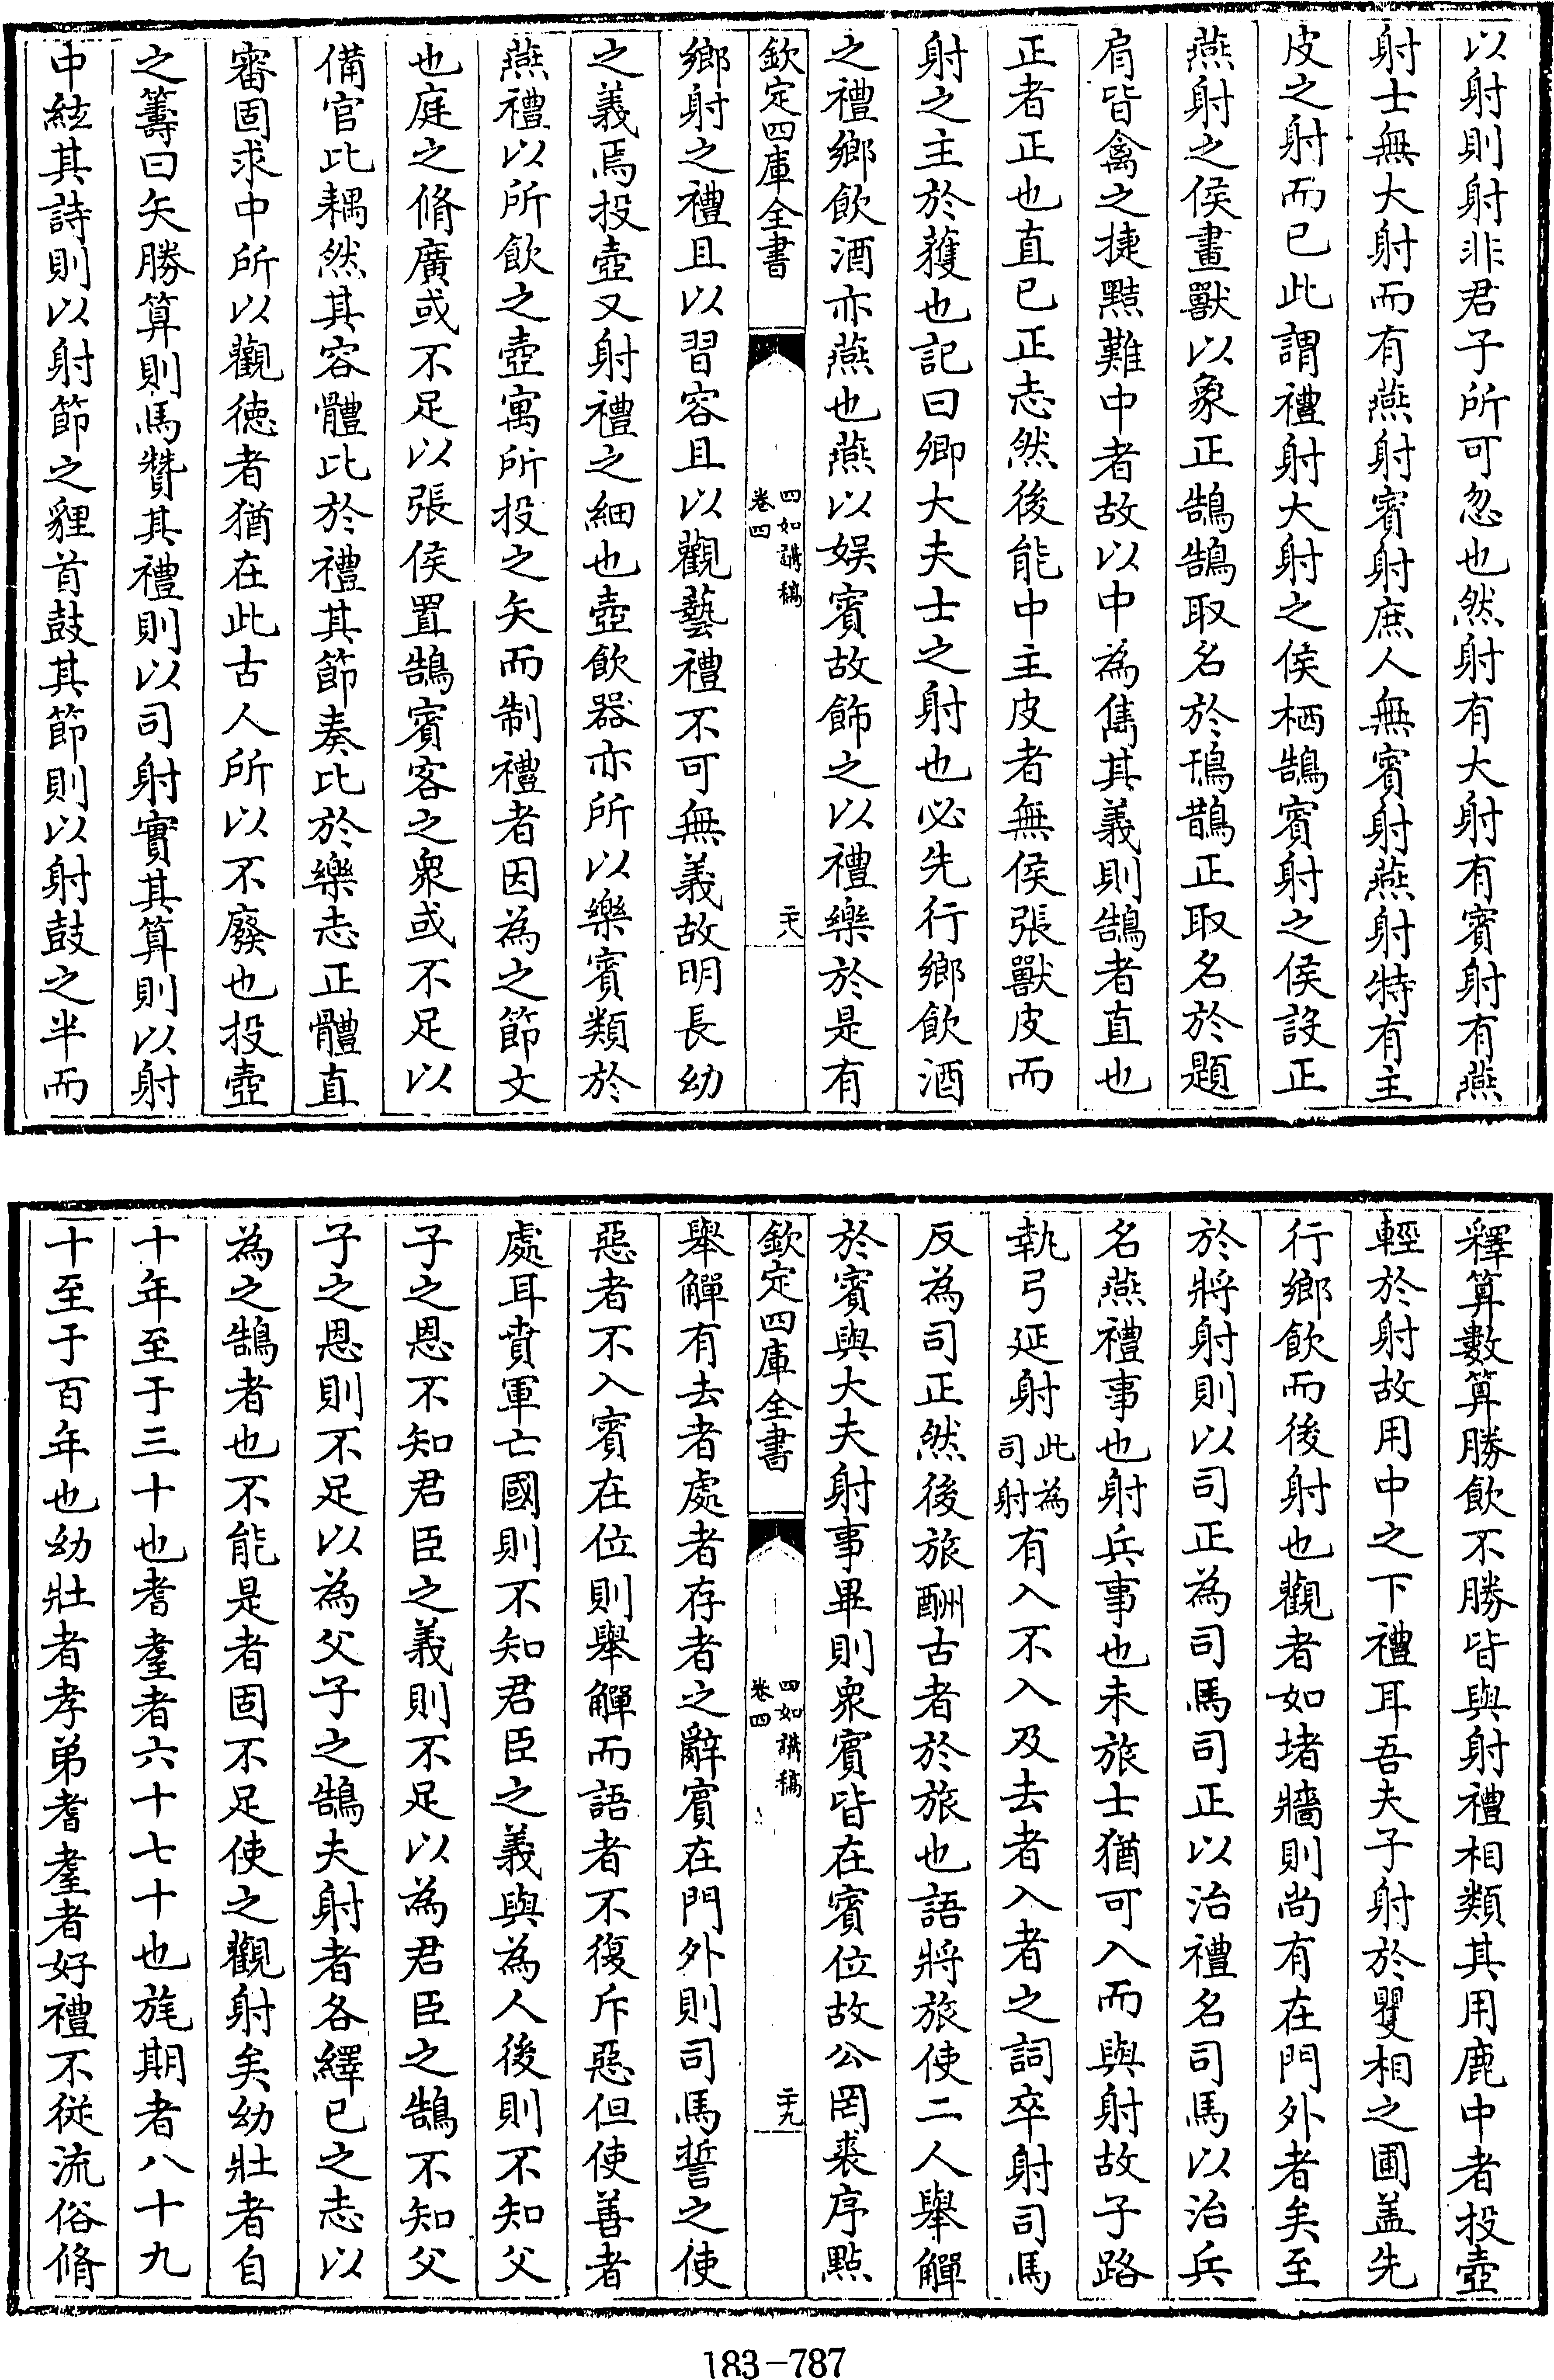 以射則射非君子所可忽也然射有大射有賓射有燕
射士無大射而有燕射賓射庶人無賓射燕射特有主
皮之射而已此謂禮射大射之侯栖鵠賓射之侯設正
燕射之侯畫獸以象正鵠鵠取名於鳱鵲正取名於題
肩皆禽之捷黠難中者故以中為雋其義則鵠者直也
正者正也直已正志然後能中主皮者無侯張獸皮而
射之主於獲也記曰卿大夫士之射也必先行鄉飲酒
之禮鄉飲酒亦燕也燕以娱賓故飾之以禮樂於是有
欽定四庫全書
四如講稿
卷四
二十八
鄉射之禮且以習容且以觀藝禮不可無義故明長幼
之義焉投壺又射禮之細也壺飲器亦所以樂賓類於
燕禮以所飲之壺寓所投之矢而制禮者因為之節文
也庭之脩廣或不足以張侯置鵠賓客之衆或不足以
備官比耦然其容體比於禮其節奏比於樂志正體直
審固求中所以觀徳者猶在此古人所以不廢也投壺
之籌曰矢勝算則馬贊其禮則以司射實其算則以射
中絃其詩則以射節之貍首鼓其節則以射鼓之半而
釋算數算勝飲不勝皆與射禮相類其用鹿中者投壺
輕於射故用中之下禮耳吾夫子射於矍相之圃盖先
行鄉飲而後射也觀者如堵牆則尚有在門外者矣至
於將射則以司正為司馬司正以治禮名司馬以治兵
名燕禮事也射兵事也未旅士猶可入而與射故子路
執弓延射此為司射有入不入及去者入者之詞卒射司馬
反為司正然後旅酬古者於旅也語將旅使二人舉觶
於賓與大夫射事畢則衆賓皆在賓位故公罔裘序點
欽定四庫全書
四如講稿
卷四
二十九
舉觶有去者處者存者之辭賓在門外則司馬誓之使
惡者不入賓在位則舉觶而語者不復斥惡但使善者
處耳賁軍亡國則不知君臣之義與為人後則不知父
子之恩不知君臣之義則不足以為君臣之鵠不知父
子之恩則不足以為父子之鵠夫射者各繹已之志以
為之鵠者也不能是者固不足使之觀射矣幼壯者自
十年至于三十也耆耋者六十七十也旄期者八十九
十至于百年也幼壯者孝弟耆耋者好禮不從流俗脩
183-787